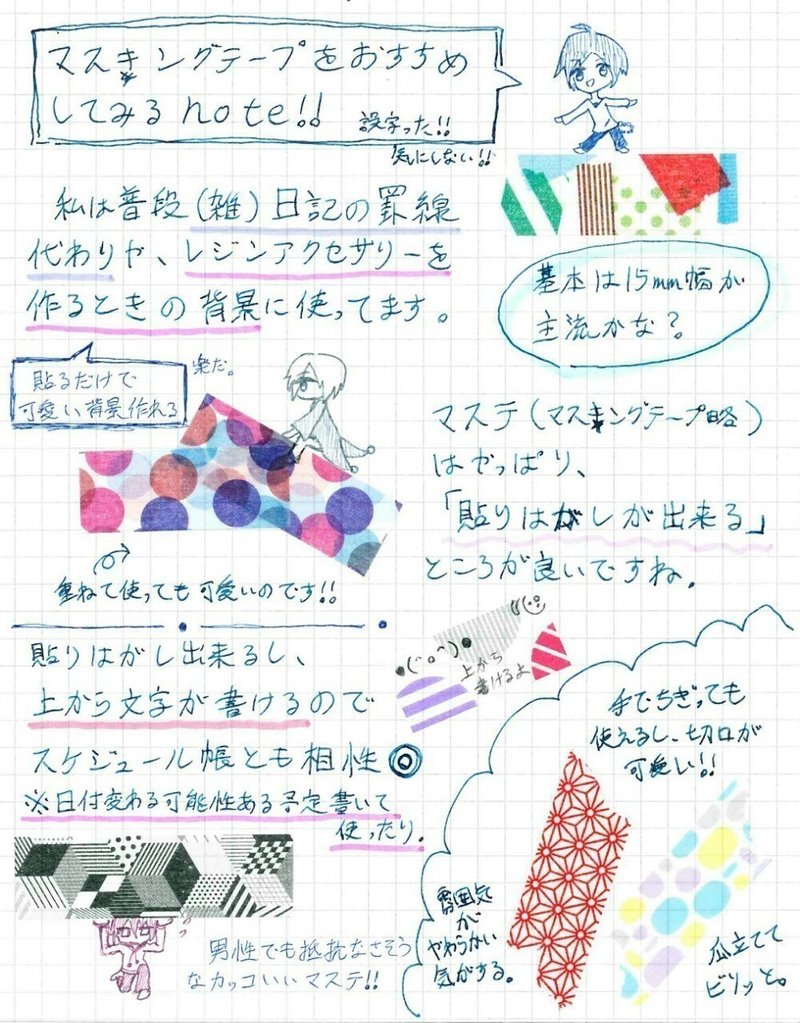 マスキングテープをおすすめ
してみるnote!!
誤字った!!
気にしない!!
私は普段(雑)日記の罫線
代わりや、レジンアクセサリーを
作るときの背景に使ってます。
基本は15mm幅が
主流かな?
貼るだけで
可愛い背景作れる
楽だ。
重ねて使っても可愛いのです!!
マステ(マスキングテープ略)
はやっぱり、
「貼りはがしが出来る」
ところが良いですね。
貼りはがし出来るし、
上から文字が書けるので
スケジュール帳とも相性◎
※日付変わる可能性ある予定書いて
使ったり。
上から
書けるよ
手でちぎっても
使えるし、切口が
可愛い!!
雰囲気
が
やわらかい
気がする。
爪立てて
ビリッと。
男性でも抵抗なさそう
なカッコいいマステ!!